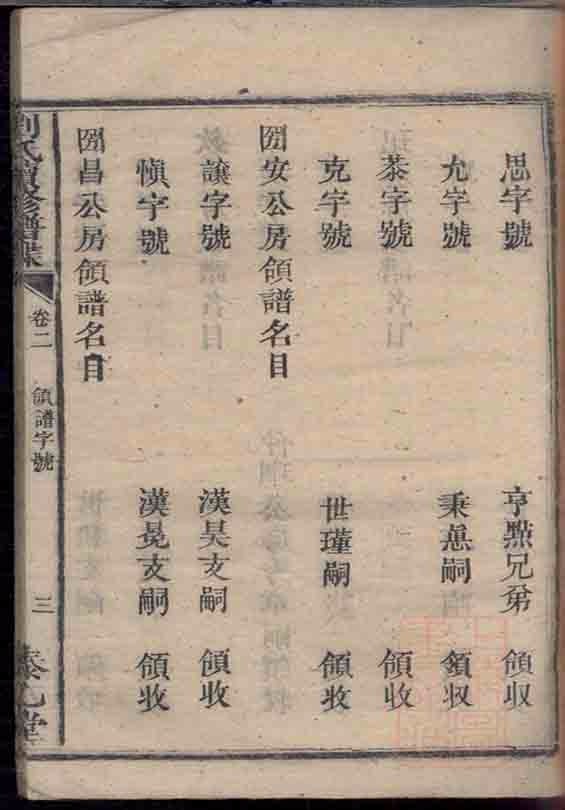 思字號 亨點兄弟 領収
允字號 秉惪嗣 領収
恭字號 領收
克字號 世瑾嗣 領收
圀安公房領譜名目
讓字號 漢昊支嗣 領收
慎字號 漢晃支嗣 領收
圀昌公房領譜名目
劉氏續修譜牒 卷二 領譜字號 三 泰元堂